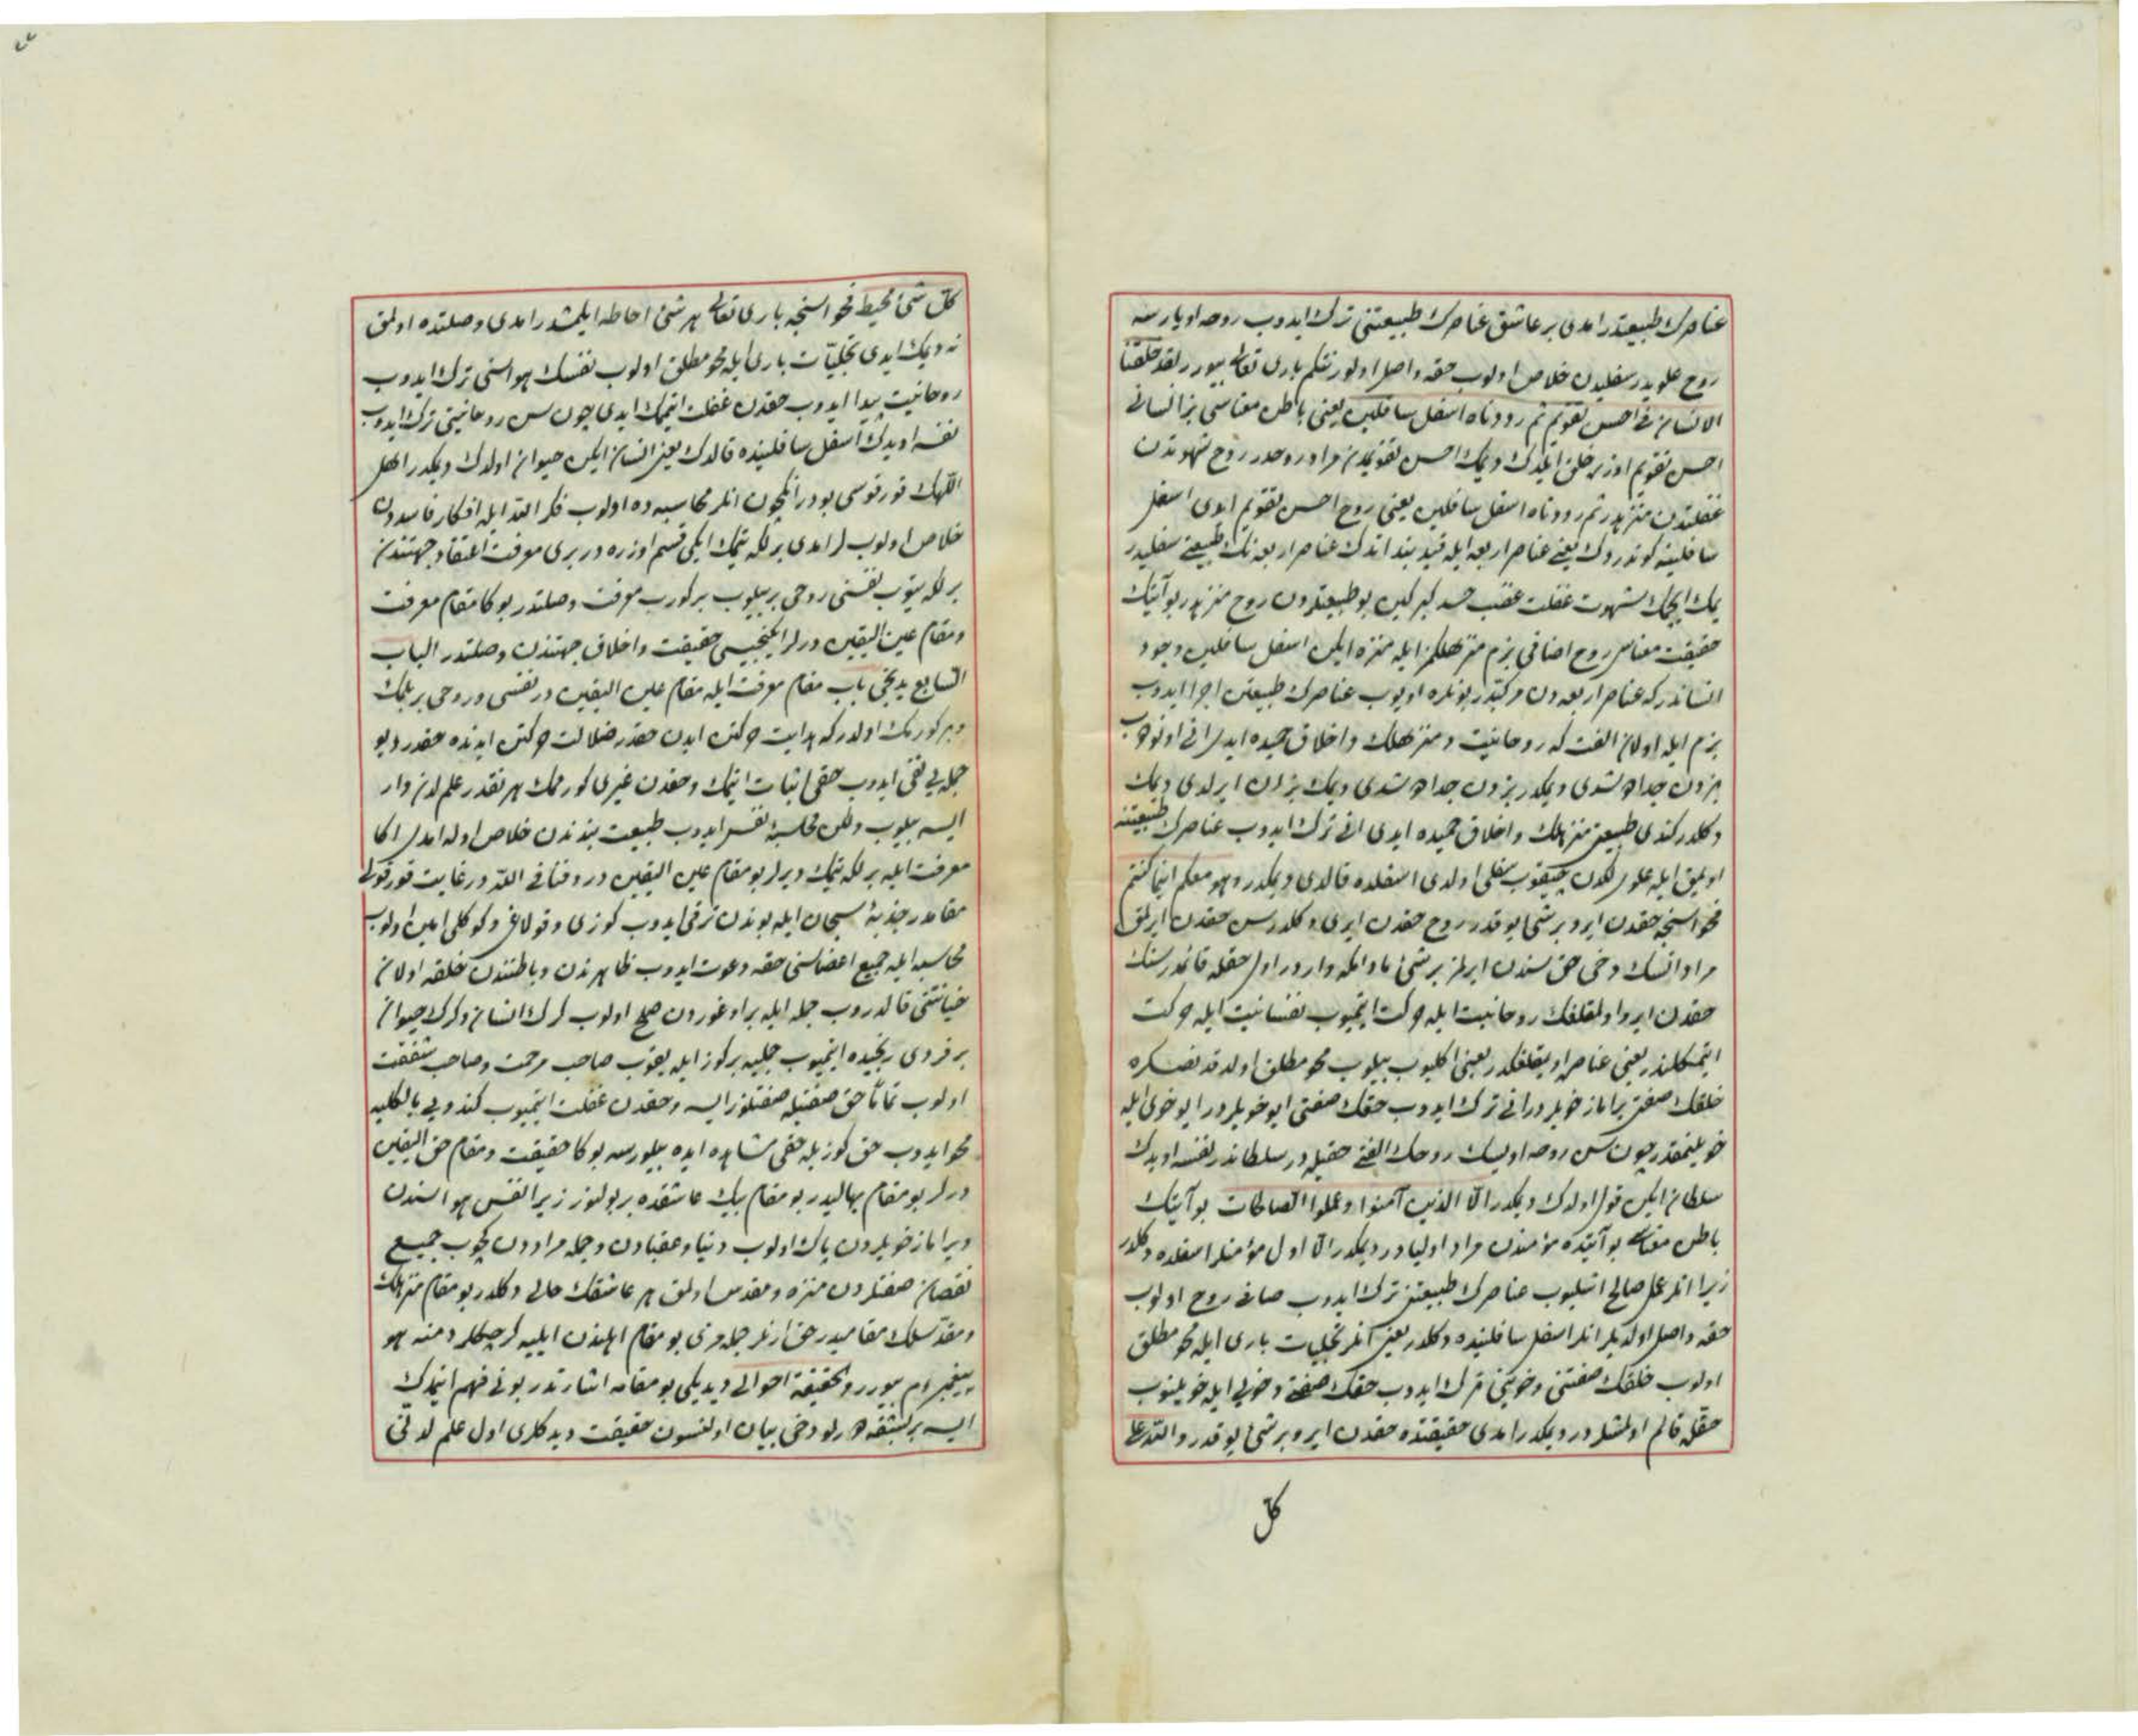 عناصرك طبيعتدر امدى بر عاشق عناصرك طبيعتنى ترك ايدوب روحه اويارسه
روح علويدر سفليدن خلاص اولوب حقه واصل اولور نتكم بارى تعالى بيورر لقد خلقنا
الانسان فى احسن تقويم ثم رددناه اسفل سافلين يعنى باطن معناسى بز انسانى
احسن تقويم اوزره خلق ايلدك ديمك احسن تقويمدن مراد روحدر روح شهوتدن
غفلتدن منزهدر ثم رددناه اسفل سافلين يعنى روح احسن تقويم ايدى اسفل
سافلينه كوندردك يعنى عناصر اربعه ايله قيد بند اتدك عناصر اربعه نك طبيعتى سفليدر
يمك ايچمك شهوت غفلت غضب حسد كبر كين بو طبيعتلردن روح منزهدر بو آيتك
حقيقت معناسى روح اضافى بزم منزهلكمز ايله منزه ايكن اسفل سافلين وجود
انساندر كه عناصر اربعه دن مركبدر بونلره اويوب عناصرك طبيعتن اجرا ايدوب
بزم ايله اولان الفت كه روحانيت ومنزهلك واخلاق حميده ايدى انى اونودوب
بزدن جدا دشدى ديمكدر بزدن جدا دشدى ديمك بزدن ايرلدى ديمك
دكلدر كندى طبيعتى منزهلك واخلاق حميده ايدى انى ترك ايدوب عناصرك طبيعتنه
اويمق ايله علويلكدن چيقوب سفلى اولدى اسفلده قالدى ديمكدر وهو معكم اينما كنتم
فحواسنجه حقدن ايرو بر شئ يوقدر روح حقدن ايرى دكلدر پس حقدن ايرلمق
مراد انسك دخى حق سندن ايرلمز بر شئ مادامكه واردر اول حقله قائمدر سنك
حقدن ايرو اولمقلغك روحانيت ايله حركت ايتميوب نفسانيت ايله حركت
ايتمكلكدر يعنى عناصره اويمقلغكدر يعنى اكليوب بيلوب محو مطلق اولدقدنصكره
خلقك صفتى يرامز خويلردر انى ترك ايدوب حقك صفتى ايو خويلردر ايو خوى ايله
خويلنمقدر چون سن روحه اويسك روحك الفتى حقيله در سلطاندر نفسه اويدك
سلطان ايكن قول اولدك ديمكدر الا الذين آمنوا وعملوا الصالحات بو آيتك
باطن معناسى بو آيتده مؤمندن مراد اوليادر ديمكدر الا اول مؤمنلر اسفلده دكلدر
زيرا انلر عمل صالح اشليوب عناصرك طبيعتن ترك ايدوب صافى روح اولوب
حقه واصل اولديلر انلر اسفل سافلينده دكلدر يعنى انلر تجليات بارى ايله محو مطلق
اولوب خلقك صفتنى وخوينى ترك ايدوب حقك صفتى وخويى ايله خويلنوب
حقله قائم اولمشلردر ديمكدر امدى حقيقتده حقدن ايرو بر شئ يوقدر والله على
كل
كل شئ محيط فحواسنجه بارى تعالى هر شئ احاطه ايلمشدر امدى وصلتده اولمق
نه ديمك ايدى تجليات بارى ايله محو مطلق اولوب نفسك هواسنى ترك ايدوب
روحانيت پيدا ايدوب حقدن غفلت ايتممك ايدى چون سن روحانيتى ترك ايدوب
نفسه اويدك اسفل سافلينده قالدك يعنى انسان ايكن حيوان اولدك ديمكدر اهل
اللهك قورقوسى بودر انكچون انلر محاسبه ده اولوب فكر الله ايله افكار فاسده دن
خلاص اولوبلر امدى برلكه يتمك ايكى قسم اوزره در برى معرفت اعتقاد جهتندن
برلكه يتوب نفسنى روحى بر بيلوب بر كورب معرفت وصلتدر بوكا مقام معرفت
ومقام عين اليقين ديرلر ايكنجيسى حقيقت واخلاق جهتندن وصلتدر الباب
السابع يدنجى باب مقام معرفت ايله مقام عين اليقين در نفسى وروحى بر بلمك
وبر كورمك اولدر كه هدايت حركتن ايدن حقدر ضلالت حركتن ايدنده حقدر ديو
جمله يى نفى ايدوب حقى اثبات ايتمك وحقدن غيرى كورممك هر نقدر علم لدن وار
ايسه بيلوب ولكن محاسبۀ نفس ايدوب طبيعت بندندن خلاص اوله امديلر اكا
معرفت ايله برلكه يتمك ديرلر بو مقام عين اليقين در وفنا فى الله در غايت قورقولى
مقامدر جذبۀ سبحان ايله بوندن ترقى ايدوب كوزى وقولاغى وكوكلى امين اولوب
محاسبه ايله جميع اعضاسنى حقه دعوت ايدوب ظاهرندن وباطنندن خلقه اولان
خيانتنى قالدروب جمله ايله بر اوغوردن صلح اولوب كرك انسان وكرك حيوان
بر فردى رنجيده ايتميوب جمليه بر كوز ايله بقوب صاحب مرحمت وصاحب شفقت
اولوب تماما حق صفتيله صفتلنور ايسه وحقدن غفلت ايتميوب كندويى بالكليه
محو ايدوب حق كوزيله حقى مشاهده ايده بيلورسه بوكا حقيقت ومقام حق اليقين
ديرلر بو مقام بهاليدر بو مقام بيك عاشقده بر بولنور زيرا نفس هواسندن
ويرامز خويلردن پاك اولوب دنيا وعقبادن وجمله مراددن كچوب جميع
نقصان صفتلردن منزه ومقدس اولمق هر عاشقك حالى دكلدر بو مقام منزهلك
ومقدسلك مقاميدر حق ارنلر جمله مزى بو مقام اهلندن ايليه كرچكلر دمنه هو
پيغمبر عم بيورر والحقيقة احوالى ديديكى بو مقامه اشارتدر بونى فهم ايتمدك
ايسه بر بشقه دورلو دخى بيان اولنسون حقيقت ديدكلرى اول علم لدنى